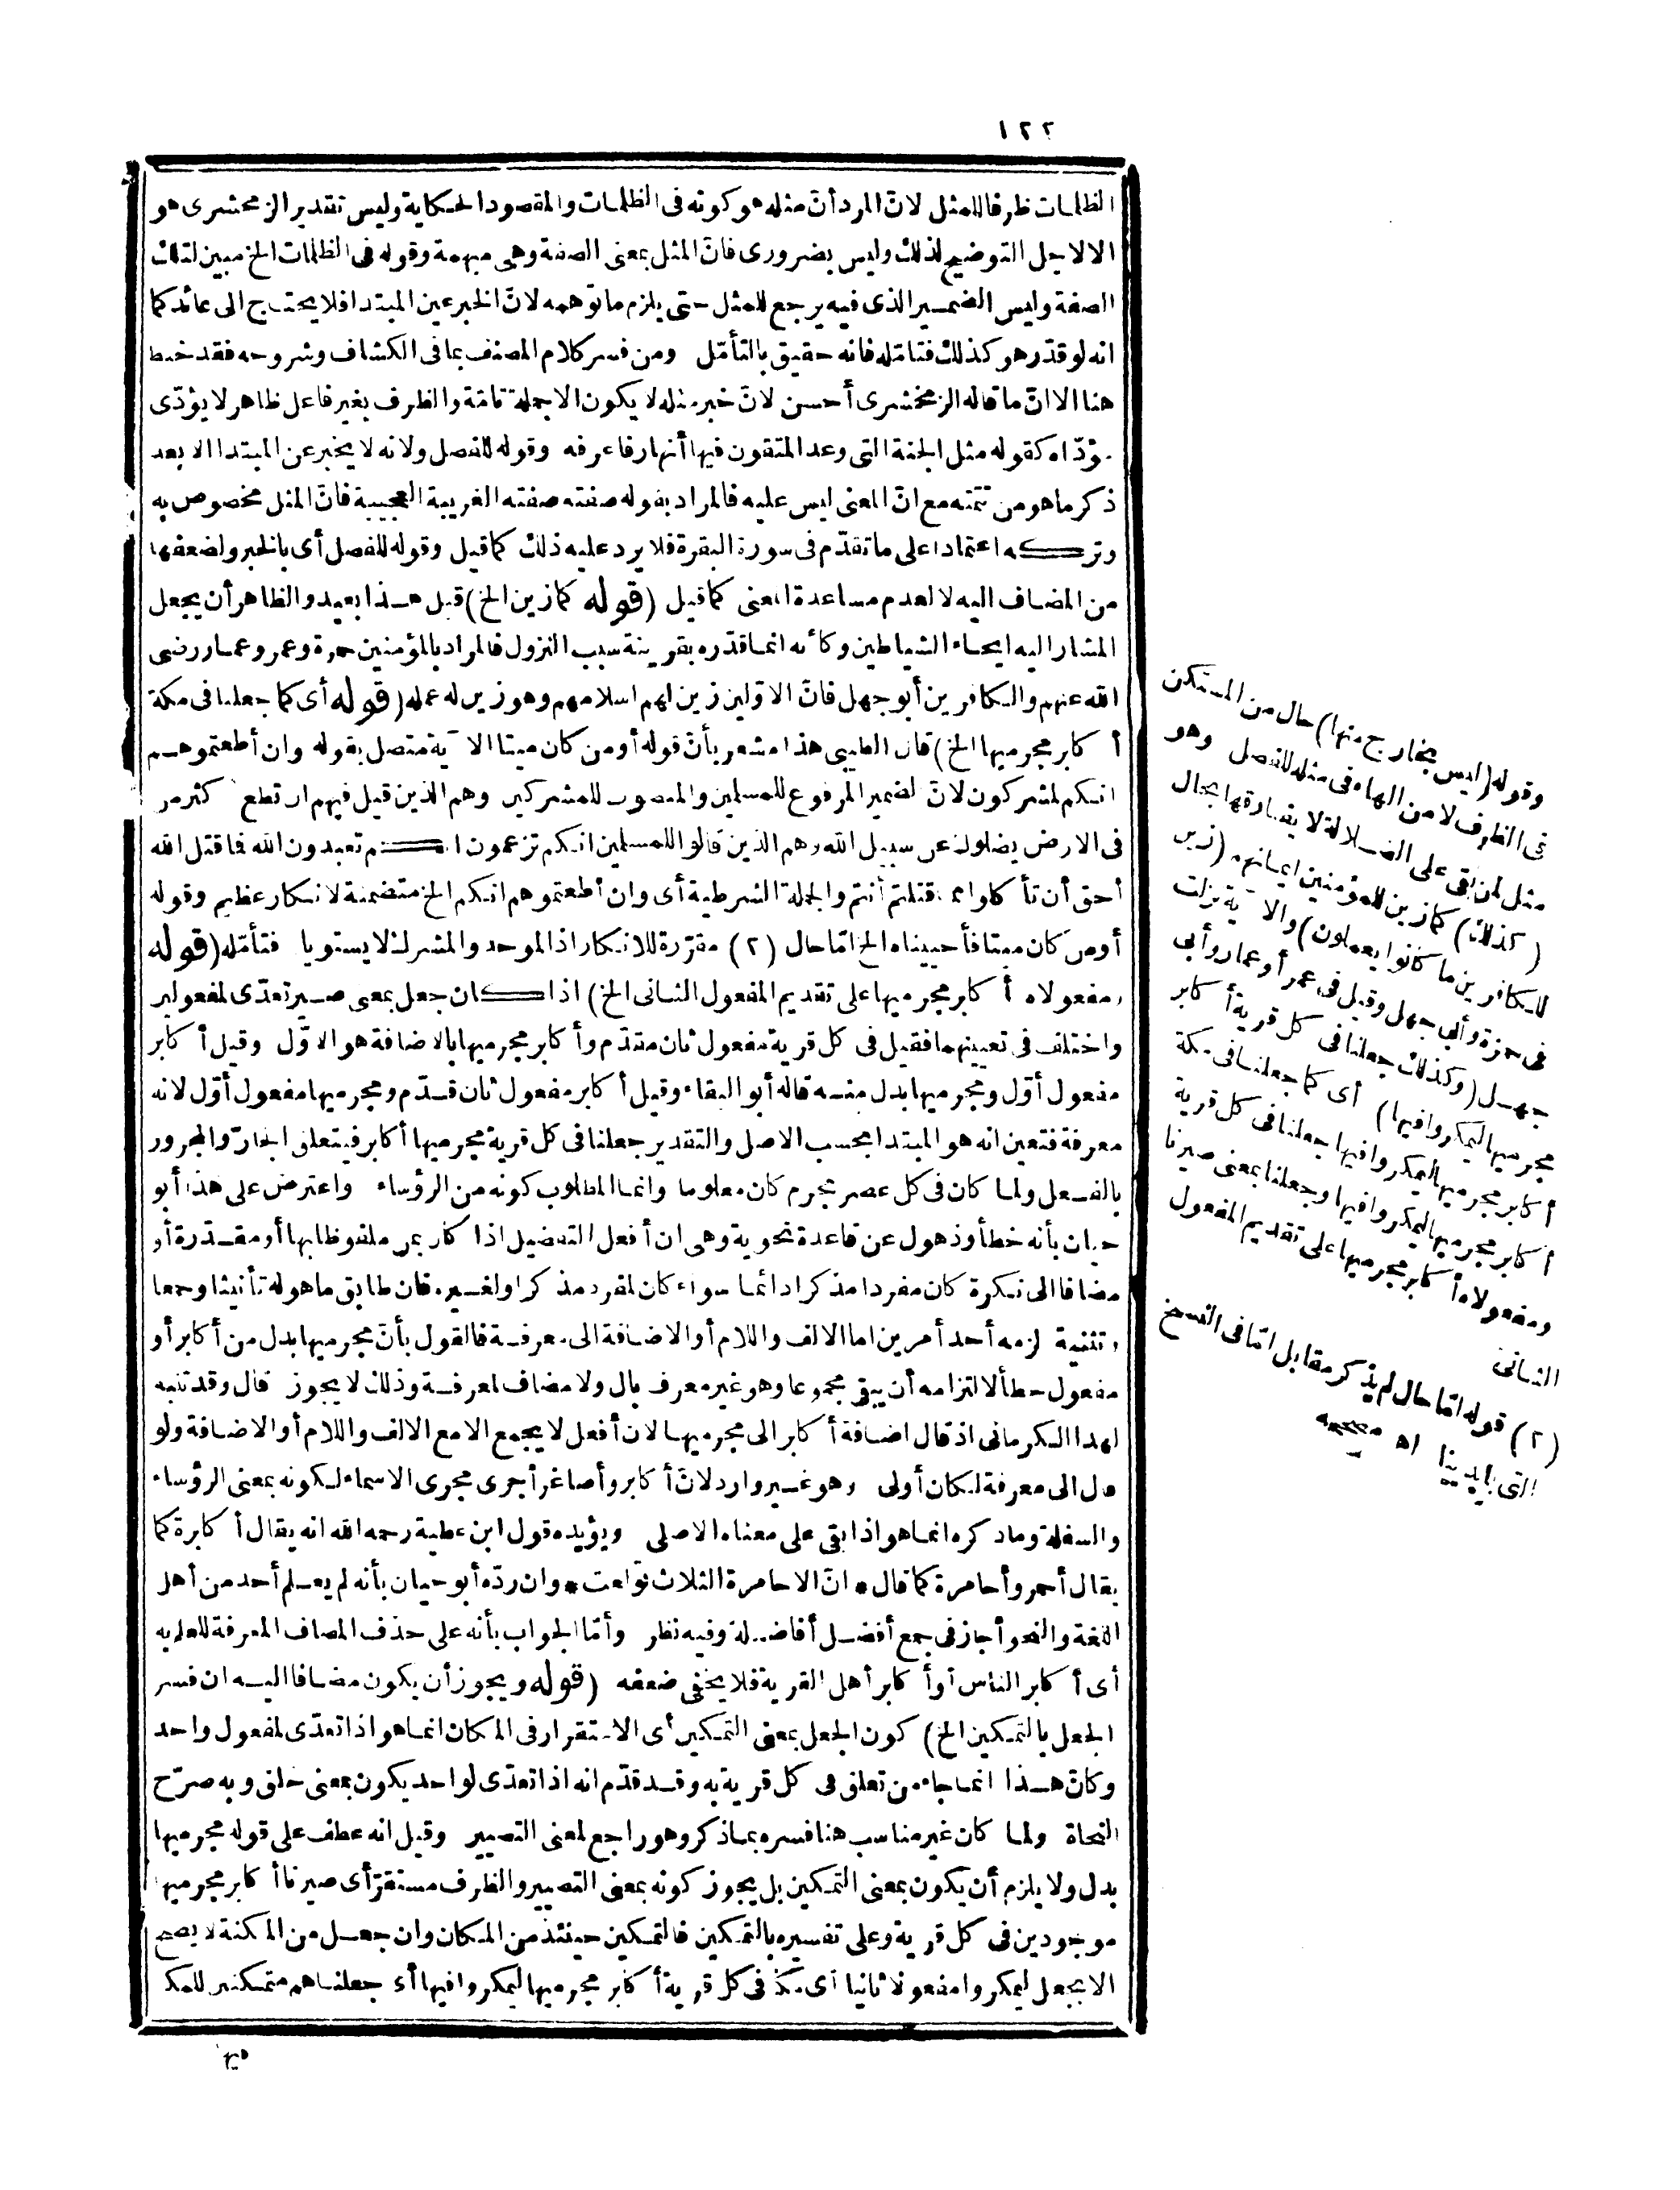 ١٢٢
الظلمات ظرفا للمثل لانّ المراد أن مثله هو كونه فى الظلمات والمقصود الحكاية وليس تقدير الزمخشرى هو
الا لاجل التوضيح لذلك وليس بضرورى فانّ المثل بمعنى الصفة وهى مبهمة وقوله فى الظلمات الخ مبين لتلك
الصفة وليس الضمير الذى فيه يرجع للمثل حتى يلزم ما توهمه لانّ الخبر عين المبتدا فلا يحتاج الى عائد كما
انه لو قدّر هو كذلك فتامّله فانه حقيق بالتأمّل ومن فسر كلام المصنف بما فى الكشاف وشروحه فقد خبط
هنا الا انّ ما قاله الزمخشرى أحسن لانّ خبر مثله لا يكون الا جملة تامّة والظرف بغير فاعل ظاهر لا يؤدّى
مؤدّاه كقوله مثل الجنة التى وعد المتقون فيها أنهار فاعرفه وقوله للفصل ولانه لا يخبر عن المبتدا الا بعد
ذكر ما هو من تتمته مع انّ المعنى ليس عليه فالمراد بقوله صفته صفته الغريبة العجيبة فانّ المثل مخصوص به
وتركه اعتمادا على ما تقدّم فى سورة البقرة فلا يرد عليه ذلك كما قيل وقوله للفصل أى بالخبر ولضعفها
من المضاف اليه لا لعدم مساعدة المعنى كما قيل (قوله كما زين الخ) قيل هذا بعيد والظاهر أن يجعل
المشار اليه ايحاء الشياطين وكأنه انما قدّره بقرينة سبب النزول فالمراد بالمؤمنين حمزة وعمر وعمار رضى
الله عنهم والكافرين أبو جهل فانّ الاوّلين زين لهم اسلامهم وهو زين له عمله (قوله أى كما جعلنا فى مكة
أكابر مجرميها الخ) قال الطيبى هذا مشعر بأنّ قوله أو من كان ميتا الآية متصل بقوله وان أطعتموهم
انكم لمشركون لانّ الضمير المرفوع للمسلمين والمنصوب للمشركين وهم الذين قيل فيهم ان تطع أكثر من
فى الارض يضلوك عن سبيل الله وهم الذين قالوا للمسلمين انكم تزعمون انكم تعبدون الله فما قتل الله
أحق أن تأكلوا مما قتلتم أنتم والجملة الشرطية أى وان أطعتموهم انكم الخ متضمنة لانكار عظيم وقوله
أو من كان ميتا فأحييناه الخ امّا حال (٢) مقرّرة للانكار اذ الموحد والمشرك لا يستويان فتأمّله (قوله
ومفعولاه أكابر مجرميها على تقديم المفعول الثانى الخ) اذا كان جعل بمعنى صير تعدّى لمفعولين
واختلف فى تعيينهما فقيل فى كل قرية مفعول ثان مقدّم وأكابر مجرميها بالاضافة هو الاوّل وقيل أكابر
مفعول أوّل ومجرميها بدل منه قاله أبو البقاء وقيل أكابر مفعول ثان قدّم ومجرميها مفعول أوّل لانه
معرفة فتعين انه هو المبتدا بحسب الاصل والتقدير جعلنا فى كل قرية مجرميها أكابر فيتعلق الجارّ والمجرور
بالفعل ولما كان فى كل عصر مجرم كان معلوما وانما المطلوب كونه من الرؤساء واعترض على هذا أبو
حيان بأنه خطأ وذهول عن قاعدة نحوية وهى ان أفعل التفضيل اذا كان بمن ملفوظا بها أو مقدّرة أو
مضافا الى نكرة كان مفردا مذكرا دائما سواء كان لمفرد مذكر اولغيره فان طابق ما هو له تأنيثا وجمعا
وتثنية لزمه أحد أمرين اما الالف واللام أو الاضافة الى معرفة فالقول بأنّ مجرميها بدل من أكابر أو
مفعول خطأ لالتزامه أن يبقى مجموعا وهو غير معرف بال ولا مضاف لمعرفة وذلك لا يجوز قال وقد تنبه
لهذا الكرمانى اذ قال اضافة أكابر الى مجرميها لان أفعل لا يجمع الا مع الالف واللام أو الاضافة ولو
قال الى معرفة لكان أولى وهو غير وارد لانّ أكابر وأصاغر أجرى مجرى الاسماء لكونه بمعنى الرؤساء
والسفلة وما ذكره انما هو اذا بقى على معناه الاصلى ويؤيده قول ابن عطية رحمه الله انه يقال أكابرة كما
يقال أحمر وأحامرة كما قال * انّ الاحامرة الثلاث تولعت * وان ردّه أبو حيان بأنه لم يعلم أحد من أهل
اللغة والنحو أجاز فى جمع أفضل أفاضلة وفيه نظر وأمّا الجواب بأنه على حذف المضاف المعرفة للعلم به
أى أكابر الناس أو أكابر أهل القرية فلا يخفى ضعفه (قوله ويجوز أن يكون مضافا اليه ان فسر
الجعل بالتمكين الخ) كون الجعل بمعنى التمكين أى الاستقرار فى المكان انما هو اذا تعدّى لمفعول واحد
وكانّ هذا انما جاء من تعلق فى كل قرية به وقد قدّم انه اذا تعدّى لواحد يكون بمعنى خلق وبه صرّح
النحاة ولما كان غير مناسب هنا فسره بما ذكر وهو راجع لمعنى التصيير وقيل انه عطف على قوله مجرميها
بدل ولا يلزم أن يكون بمعنى التمكين بل يجوز كونه بمعنى التصيير والظرف مستقرّ أى صيرنا أكابر مجرميها
موجودين فى كل قرية وعلى تفسيره بالتمكين فالتمكين حينئذ من المكان وان جعل من المكنة لا يصح
الا بجعل ليمكروا مفعولا ثانيا أى مكنا فى كل قرية أكابر مجرميها ليمكروا فيها أى جعلناهم متمكنين للمكر
وقوله (ليس بخارج منها) حال من المستكن
فى الظرف لا من الهاء فى مثله للفصل وهو
مثل لمن بقى على الضلالة لا يفارقها بحال
(كذلك) كما زين للمؤمنين ايمانهم (زين
للكافرين ما كانوا يعملون) والآية نزلت
فى حمزة وأبى جهل وقيل فى عمر أو عمار وأبى
جهل (وكذلك جعلنا فى كل قرية أكابر
مجرميها ليمكروا فيها) أى كما جعلنا فى مكة
أكابر مجرميها ليمكروا فيها جعلنا فى كل قرية
أكابر مجرميها ليمكروا فيها وجعلنا بمعنى صيرنا
ومفعولاه أكابر مجرميها على تقديم المفعول
الثانى
(٢) قوله امّا حال لم يذكر مقابل امّا فى النسخ
التى بايدينا اه مصححه